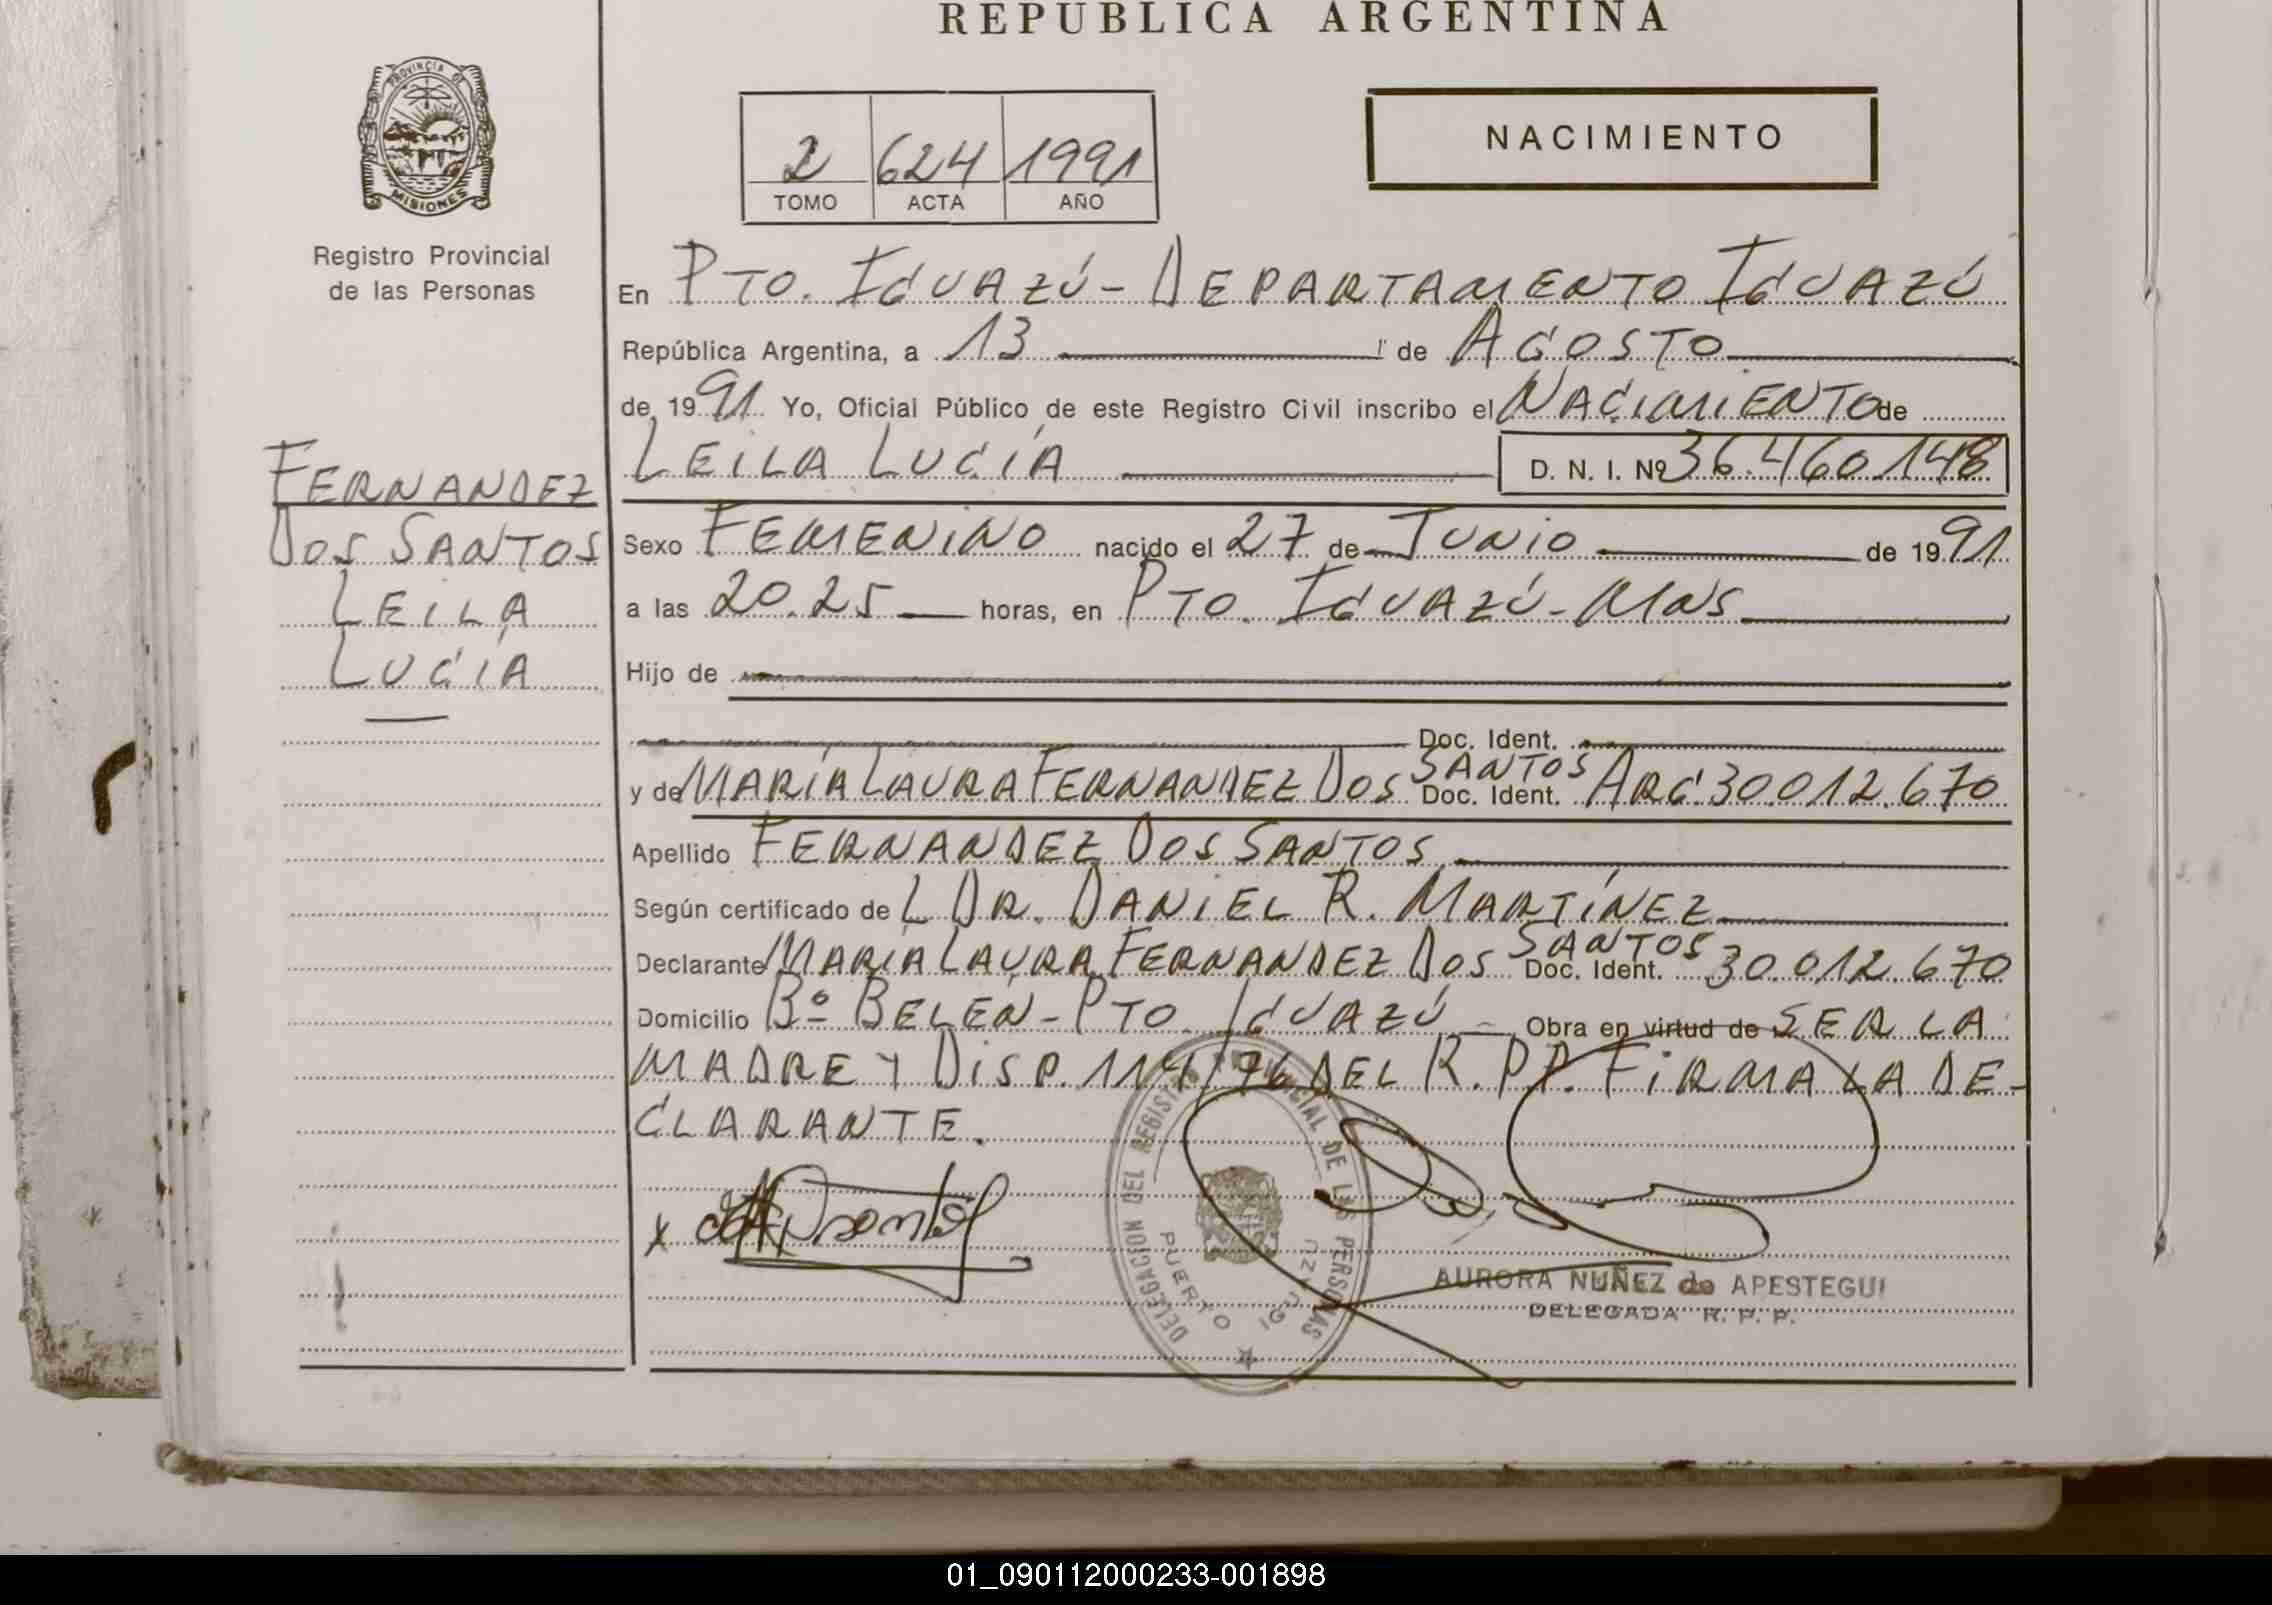 REPUBLICA ARGENTINA
PROVINCIA DE
MISIONES
Registro Provincial
de las Personas
NACIMIENTO
2 624 1991
TOMO ACTA AÑO
En PTO. IGUAZÚ - DEPARTAMENTO IGUAZÚ
República Argentina, a 13 de AGOSTO
de 1991 Yo, Oficial Público de este Registro Civil inscribo el NACIMIENTO de
LEILA LUCÍA D. N. I. Nº 36.460.148
FERNANDEZ
DOS SANTOS
LEILA
LUCÍA
Sexo FEMENINO nacido el 27 de JUNIO de 1991
a las 20.25 horas, en PTO. IGUAZÚ - MNS
Hijo de
Doc. Ident.
y de MARÍA LAURA FERNANDEZ DOS SANTOS Doc. Ident. ARG. 30.012.670
Apellido FERNANDEZ DOS SANTOS
Según certificado de L DR. DANIEL R. MARTÍNEZ
Declarante MARIA LAURA FERNANDEZ DOS SANTOS Doc. Ident. 30.012.670
Domicilio Bº BELEN - PTO. IGUAZÚ Obra en virtud de SER LA
MADRE Y DISP. 114/76 DEL R.P.P. FIRMA LA DE-
CLARANTE.
x
DELEGACION DEL REGISTRO PROVINCIAL DE LAS PERSONAS
PUERTO IGUAZU
AURORA NUÑEZ de APESTEGUI
DELEGADA R. P. P.
01_090112000233-001898